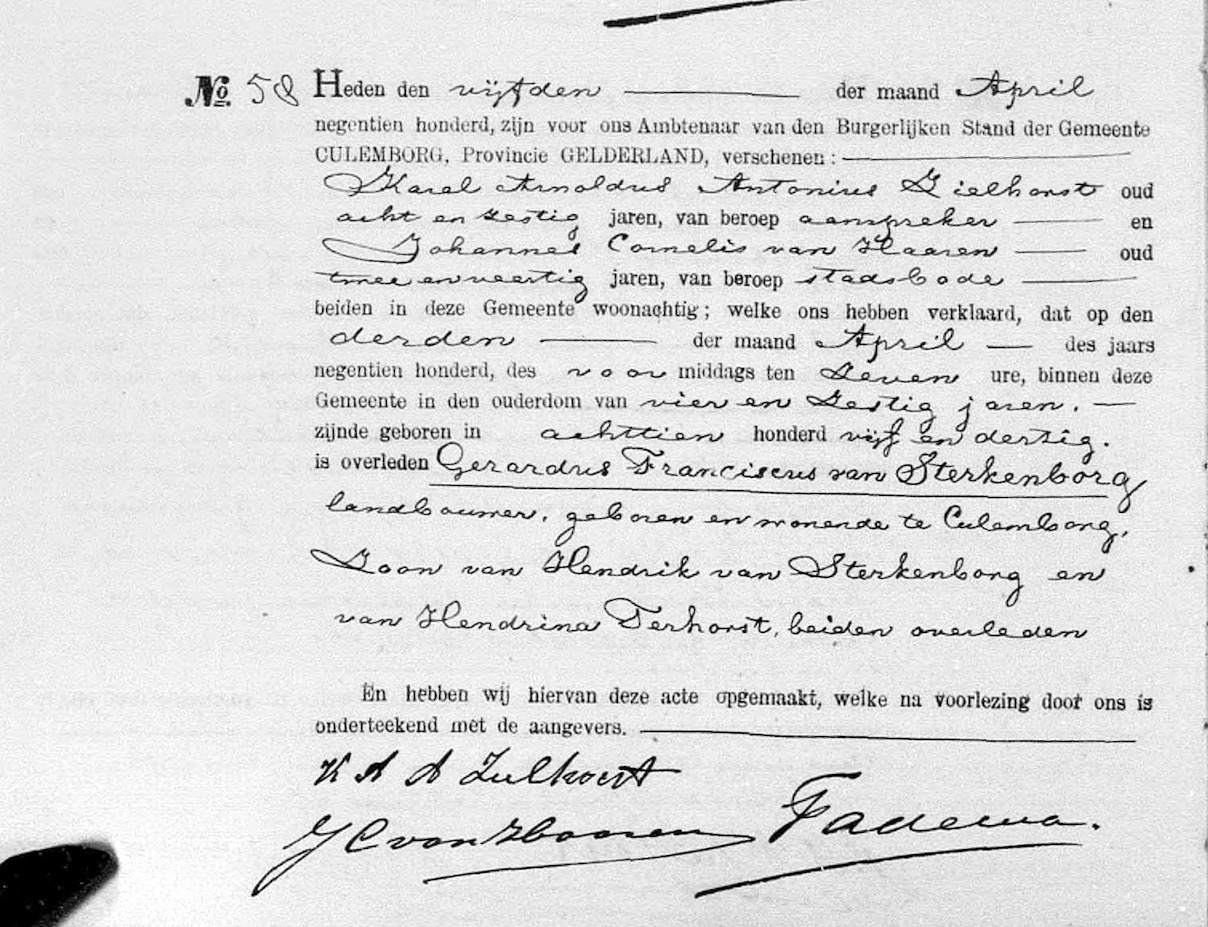 No. 58 Heden den vijfden der maand April
negentien honderd, zijn voor ons Ambtenaar van den Burgerlijken Stand der Gemeente
CULEMBORG, Provincie GELDERLAND, verschenen:
Karel Arnoldus Antonius Zielhorst oud
acht en zestig jaren, van beroep aanspreker en
Johannes Cornelis van Haaren oud
twee en veertig jaren, van beroep stadsbode
beiden in deze Gemeente woonachtig; welke ons hebben verklaard, dat op den
derden der maand April des jaars
negentien honderd, des voor middags ten zeven ure, binnen deze
Gemeente in den ouderdom van vier en zestig jaren.
zijnde geboren in achttien honderd vijf en dertig.
is overleden Gerardus Franciscus van Sterkenborg
landbouwer, geboren en wonende te Culemborg,
Zoon van Hendrik van Sterkenborg en
van Hendrina Terhorst, beiden overleden
En hebben wij hiervan deze acte opgemaakt, welke na voorlezing door ons is
onderteekend met de aangevers.
K A A Zielhorst
J C van Haaren